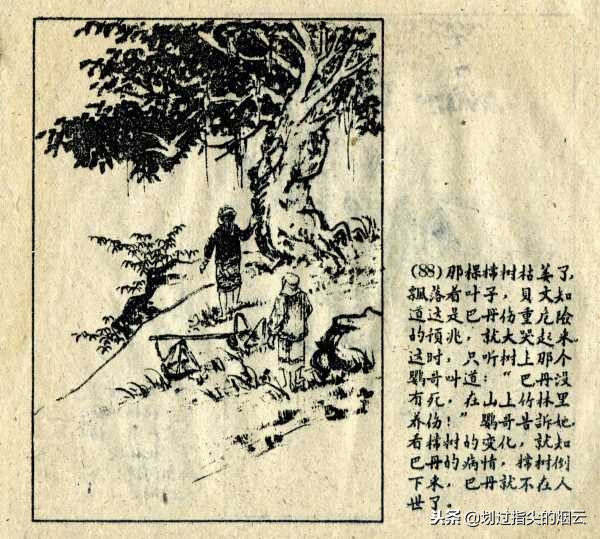 (88)那棵榕树枯萎了,
飄落着叶子，貝文知
道这是巴丹伤重危险
的预兆，就大哭起来。
这时，只听树上那个
鹦哥叫道：“巴丹没
有死，在山上竹林里
养伤！”鹦哥告訴她，
看榕树的变化，就知
巴丹的病情，榕树倒
下来，巴丹就不在人
世了。
头条 @划过指头的烟云